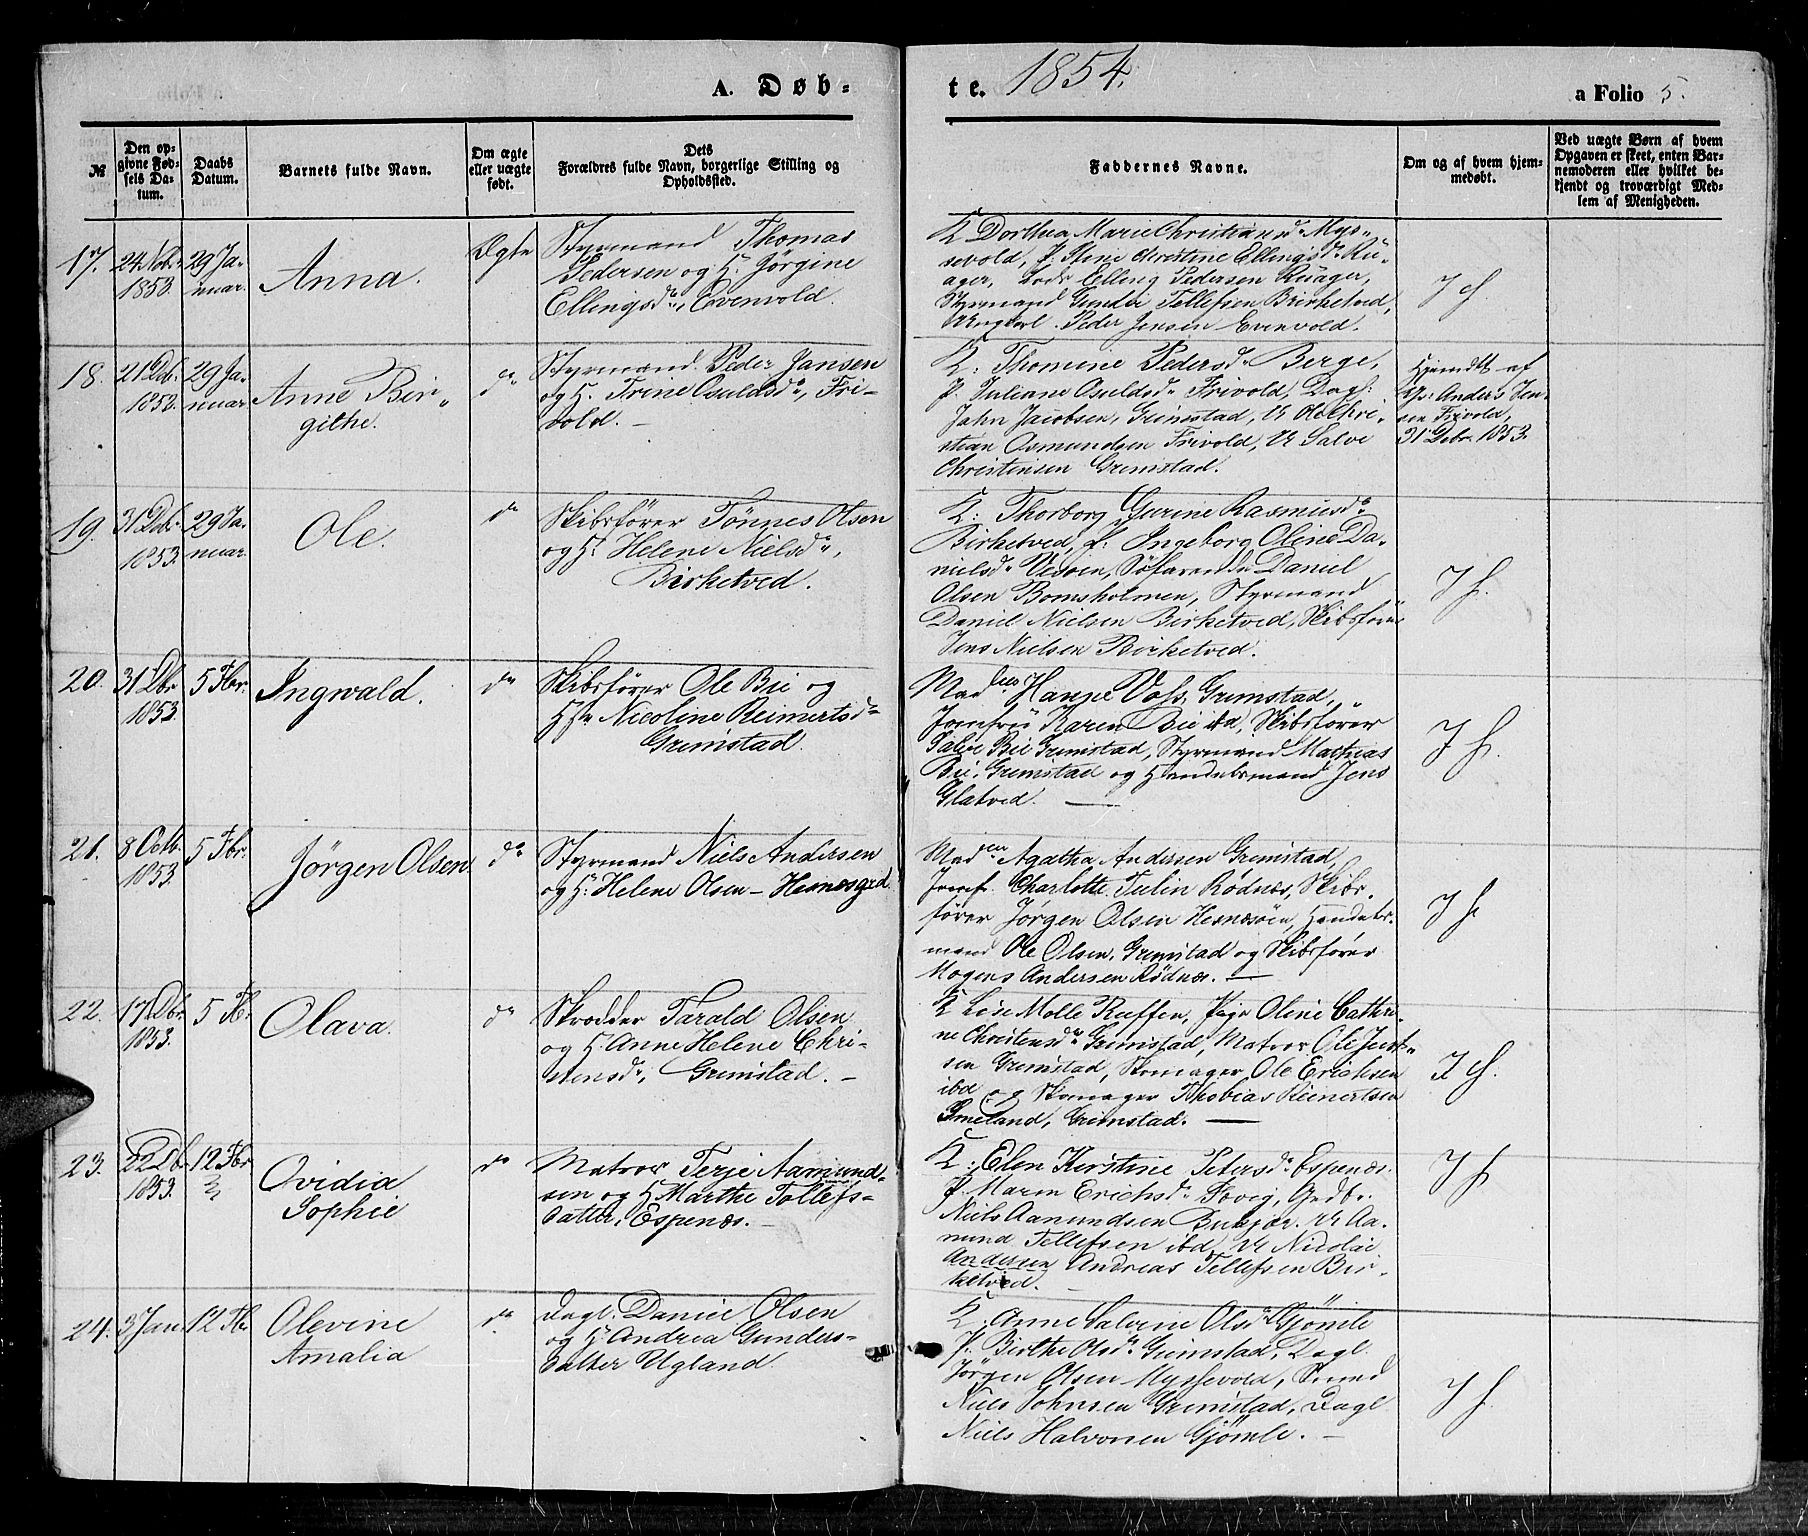 A. Døb-
te. 1854.
a Folio 5.
№
Den op-
givne Fød-
sels Da-
tum.
Daabs
Datum.
Barnets fulde Navn.
Om ægte
eller uægte
født.
Dets
Forældres fulde Navn, borgerlige Stilling og
Opholdssted.
Faddernes Navne.
Om og af hvem hjem-
medøbt.
Ved uægte Børn af hvem
Opgaven er skeet, enten Bar-
nemoderen eller hvilket be-
kjendt og troværdigt Med-
lem af Menigheden.
17.
1853.
29 Ja-
nuar.
Anna.
Ægte
Styrmand Thomas
Pedersen og H. Jørgine
Ellingsd., Evenvold.
K Dorthea Marie Christians d. Mys-
sevold, P. Stine Christine Ellingsd. Ru-
ager, Lods Elling Pedersen Ruager,
Styrmand Gunder Tellefsen Birketved,
Ungkarl Peder Jensen Evenvold.
18.
21 Dcb.
1853.
29 Ja-
nuar.
Anne Bir-
githe.
do
Styrmand Peder Jansen
og H. Trine Osuldsd., Fri-
vold. -
K. Thomine Pedersd. Berge,
P. Juliane Osuldsd. Frivold, Dagl.
John Jacobsen, Grimstad, U Ole Chri-
stian Osmundsen Frivold, U Salve
Christensen Grimstad.
Hjemdt af
Anders Jen-
sen Frivold,
31 Debr 1853.
19.
31 Dcb.
1853.
29 Ja-
nuar.
Ole.
do
Skibsfører Tønnes Olsen
og H. Helene Nielsd.,
Birketved.
K: Thorborg Gurine Rasmusd.
Birketved, P. Ingeborg Oline Da-
nielsd. Vessøen, Søfarende Daniel
Olsen Bomsholmen, Styrmand
Daniel Nielsen Birketved, Skibsfører
Jens Nielsen Birketved.
20.
31 Dbr
1853
5 Fbr.
Ingwald.
do
Skibsfører Ole Bie og
Nicoline Reimertsd.
Grimstad.
Mad Hanne Voss, Grimstad,
Jomfru Karen Bie ibd, Skibsfører
Salve Bie Grimstad, Styrmand Mathias
Bie, Grimstad og Handelsmand Jens
Glatved. —
21.
8 Octb.
1853.
5 Fbr.
Jørgen Olsen
do
Styrmand Niels Andersen
og H. Helene Olsen - Hesnæsgrd
Mad Agatha Andersen Grimstad,
Jomf. Charlotte Tulin Rødnæs, Skibs-
fører Jørgen Olsen Hesnæsøen, Handels-
mand Ole Olsen, Grimstad og Skibsfører
Mogens Andersen Rødnæs. —
22.
17 Dbr.
1853.
5 Fb.
Olava.
do
Skrædder Tarald Olsen
og H. Anne Helene Chri-
stensd., Grimstad. -
K Lise Malle Ruffen, Pige Oline Cathri-
ne Christensd. Grimstad, Matros Ole Just-
sen Grimstad, Skomager Ole Erichsen
ibd og Skomager Thobias Reinertsen
Smeland, Grimstad. —
23.
22 Db.
1853.
12 Fbr
Ovidia
Sophie
do
Matros Terje Aamund-
sen og H Marthe Tollefs-
datter, Espenæs. -
K: Elen Kirstine Petersd. Espenæs.
P. Maren Erichsd. Fevig, Grdbr.
Niels Aanundsen Bukjær. U Aa-
nund Tellefsen ibd, U Nicolai
Andersen Andreas Tellefsen Bir-
ketved. -
24.
3 Jan.
12 Fb.
Olevine
Amalia
do
Dagl. Daniel Olsen
og H Andrea Gunders-
datter Ugland.
K. Anne Salvine Olsd. Gjømle
P. Birthe Olsd. Grimstad, Dagl.
Jørgen Olsen Myssevold, Smed
Niels Johnsen Grimstad, Dagl
Niels Halvorsen Gjømle. -